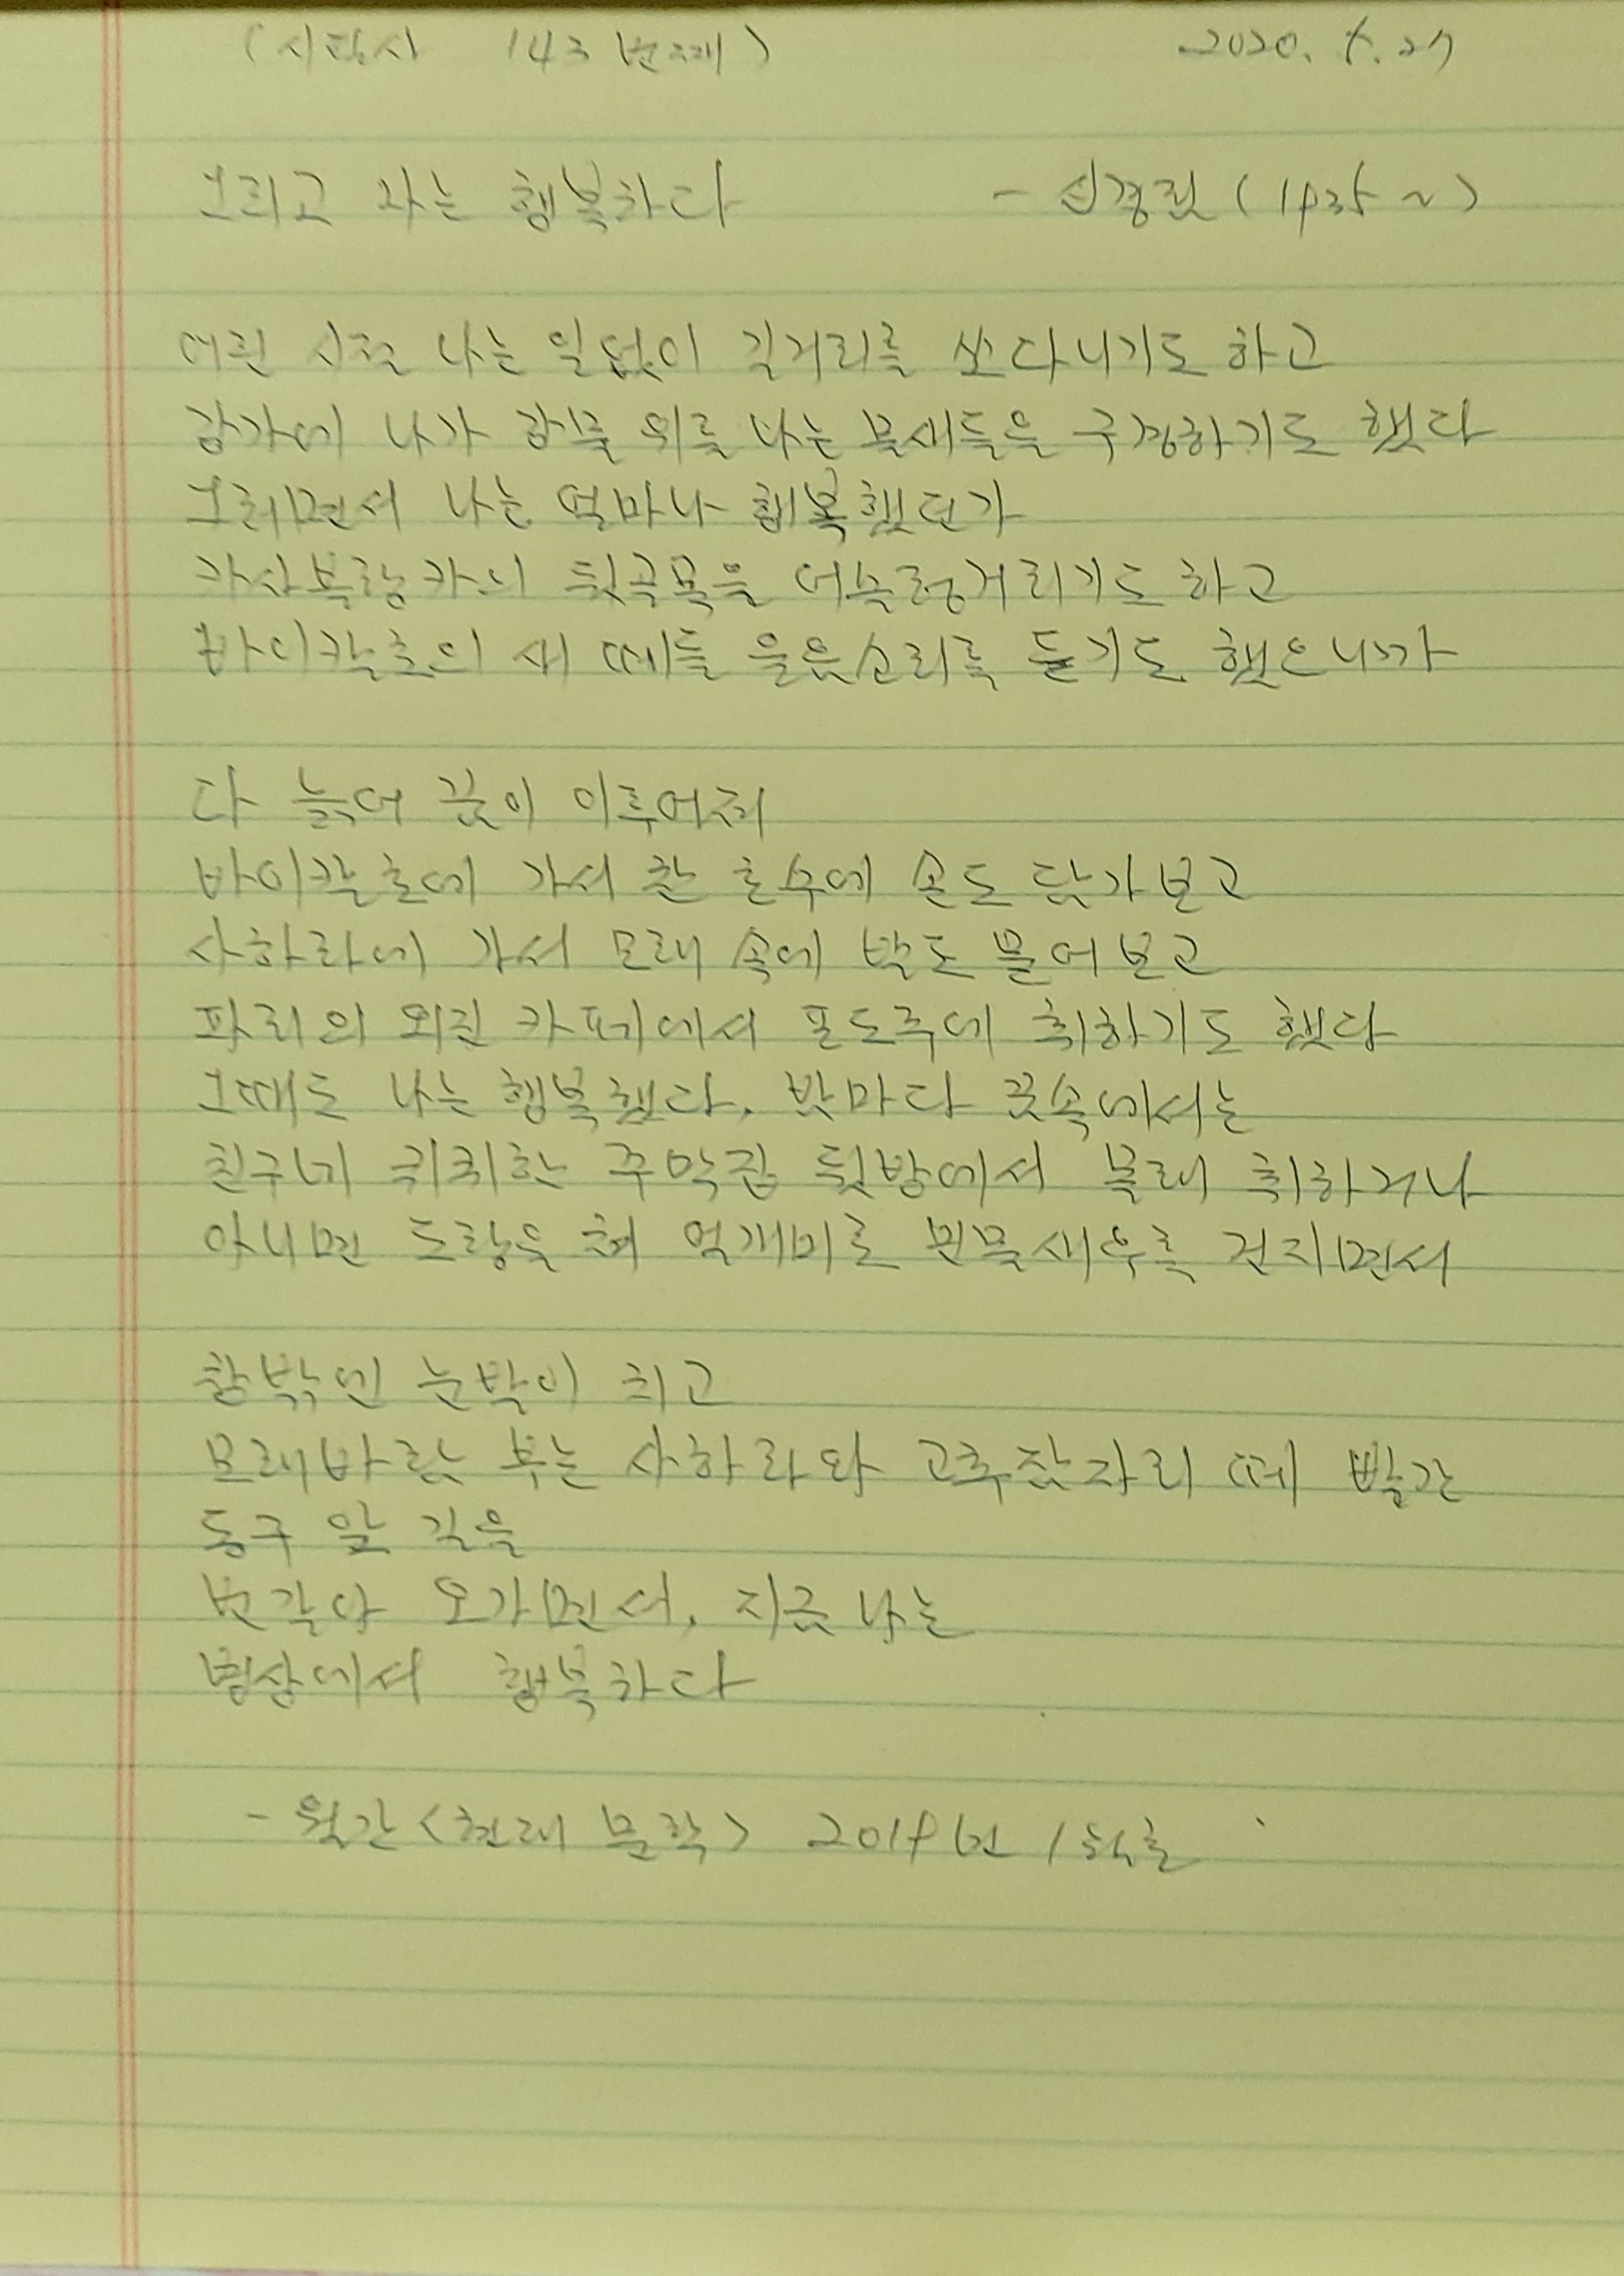 (시람사 143번째) 2020. 5. 27
그리고 나는 행복하다 - 신경림 (1935 ~)
어린 시절 나는 일없이 길거리를 쏘다니기도 하고
강가에 나가 강물 위를 나는 물새들을 구경하기도 했다
그러면서 나는 얼마나 행복했던가
카사블랑카의 뒷골목을 어슬렁거리기도 하고
바이칼호의 새 떼들 울음소리를 듣기도 했으니까
다 늙어 꿈이 이루어져
바이칼호에 가서 찬 호수에 손도 담가보고
사하라에 가서 모래 속에 발도 묻어보고
파리의 외진 카페에서 포도주에 취하기도 했다
그때도 나는 행복했다. 밤마다 꿈속에서는
친구네 퀴퀴한 주막집 뒷방에서 몰래 취하거나
아니면 도랑을 쳐 얼개미로 민물새우를 건지면서
창밖엔 눈발이 치고
모래바람 부는 사하라와 고추잠자리 떼 빨간
동구 앞 길을
번갈아 오가면서. 지금 나는
병상에서 행복하다
- 월간 <현대 문학> 2019년 1월호